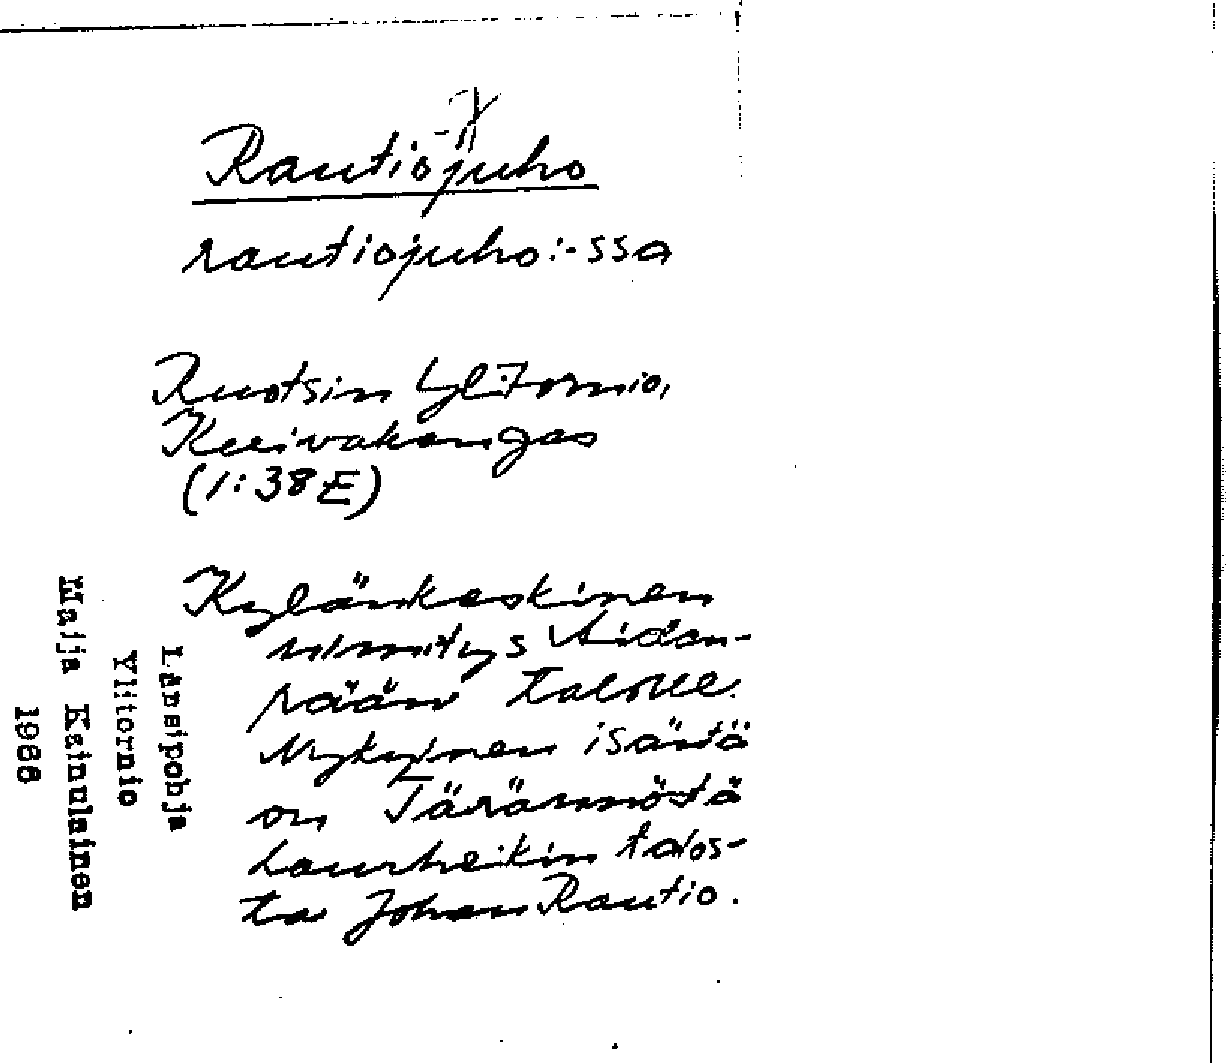 Rautiojuho
rautiojuho:-ssa
Ruotsin Ylitornio,
Kuivakangas
(1:38E)
Kylänkeskinen
nimitys Aidan-
pään talolle.
Nykyinen isäntä
on Tärännöstä
Lauriheikin talos-
ta Johan Rautio.
Länsipohja
Ylitornio
Maija Kainulainen
1988